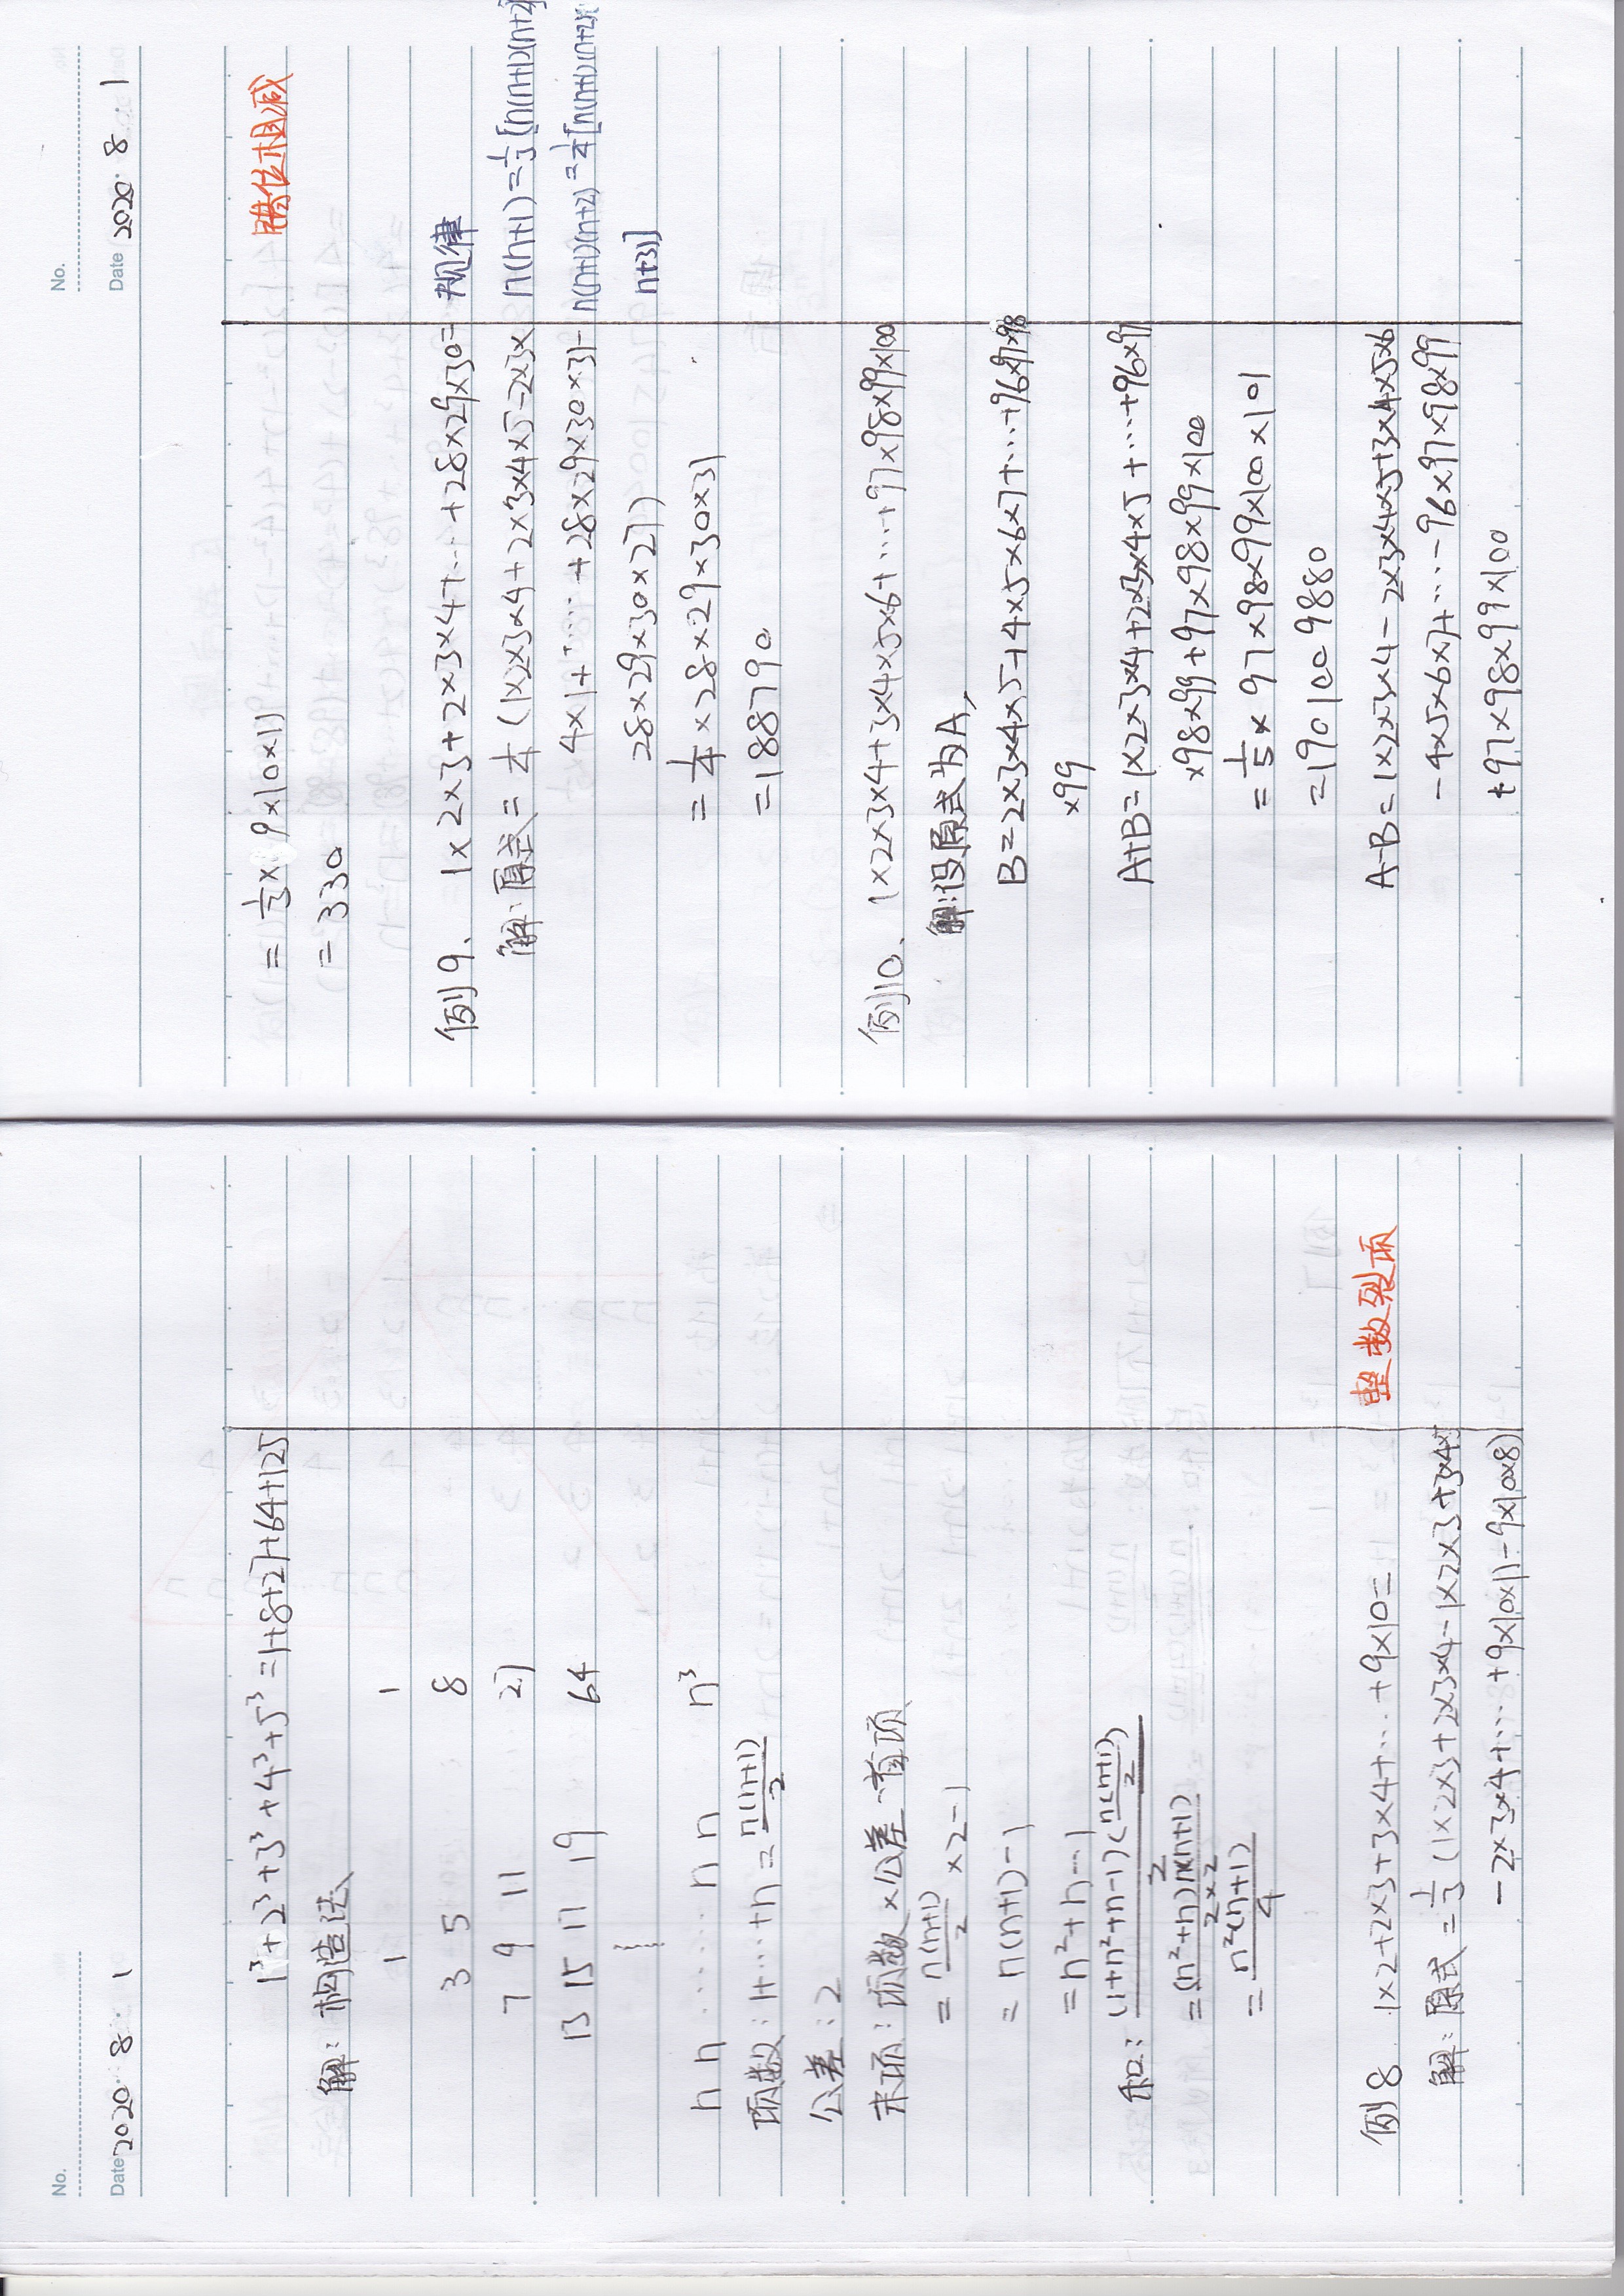 No.
Date 2020 8 1
1³+2³+3³+4³+5³=1+8+27+64+125
解:构造法
1 1
3 5 8
7 9 11 27
13 15 17 19 64
n n …… n n n³
项数:1+…+n=n(n+1)/2
公差:2
末项:项数×公差-首项
=n(n+1)/2×2-1
=n(n+1)-1
=n²+n-1
和:(1+n²+n-1)(n(n+1)/2)/2
=(n²+n)n(n+1)/2×2
=n²(n+1)²/4
例8 1×2+2×3+3×4+…+9×10= 整数裂项
解:原式=1/3(1×2×3+2×3×4-1×2×3+3×4×5
-2×3×4+…+9×10×11-9×10×8)
No.
Date 2020 8 1
=1/3×(9×10×11) 错位相减
=330
例9、1×2×3+2×3×4+…+28×29×30= 规律
解:原式=1/4(1×2×3×4+2×3×4×5-2×3× n(n+1)=1/3[n(n+1)(n+2)]
4×1+……+28×29×30×31- n(n+1)(n+2)=1/4[n(n+1)(n+2)(
28×29×30×27) n+3)]
=1/4×28×29×30×31
=188790
例10、1×2×3×4+3×4×5×6+…+97×98×99×100
解:设原式为A,
B=2×3×4×5+4×5×6×7+…+96×97×98
×99
A+B=1×2×3×4+2×3×4×5+…+96×97
×98×99+97×98×99×100
=1/5×97×98×99×100×101
=1901009880
A-B=1×2×3×4-2×3×4×5+3×4×5×6
-4×5×6×7+…-96×97×98×99
+97×98×99×100